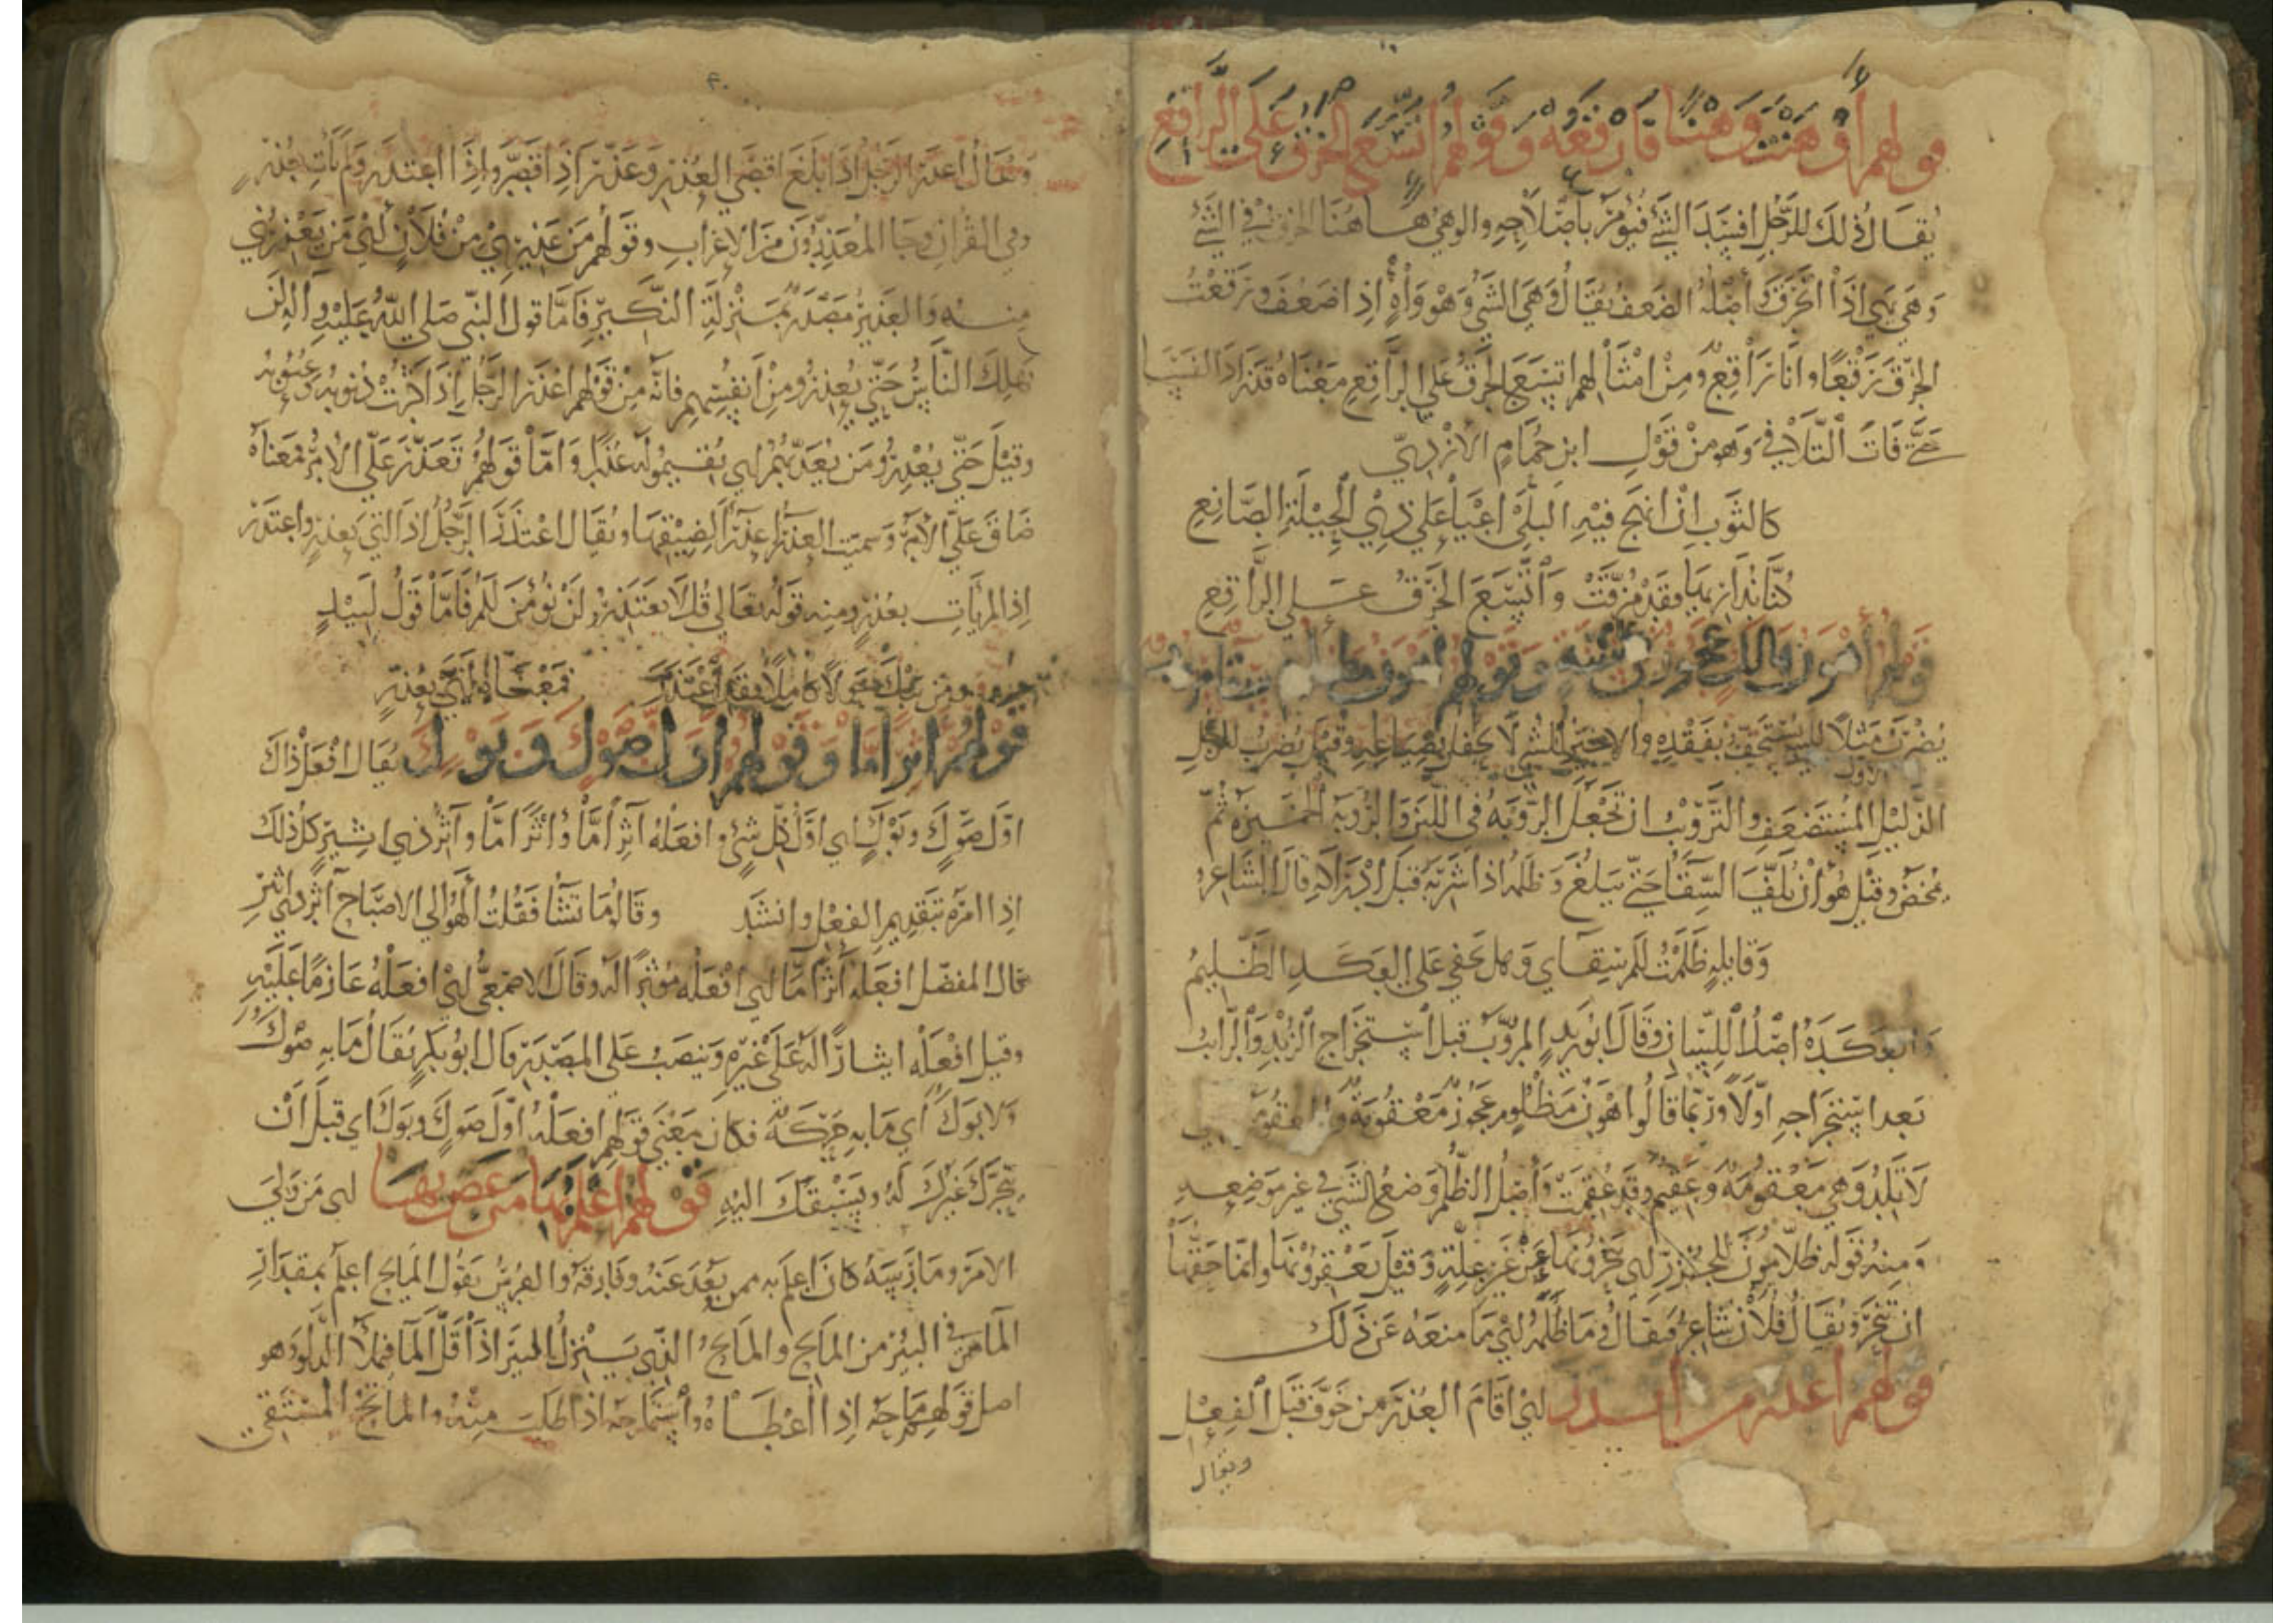 قولهم أوهيت وهيا فارقعه وقولهم اتسع الخرق على الراقع
يقال ذلك للرجل افسد الشئ فيؤمر باصلاحه والوهي هاهنا الخرق في الشئ
وهي يهي اذا انخرق وأصله الضعف يقال وهي الشي وهو واه إذا ضعف ورقعت
الخرق رقعا وانا راقع ومن امثالهم اتسع الخرق على الراقع معناه قد زاد الفساد
حتى فات التلافي وهو من قول ابن حمام الازدي
كالثوب ان انهج فيه البلى اعيا على ذي الحيلة الصانع
كنا نداريها فقد مزقت واتسع الخرق على الراقع
قولهم أهون من وقولهم أهون
يضرب مثلا للشئ يستخف بفقده والاحتمال لا يحفل بضياعه وقيل يضرب للرجل
الذليل المستضعف والترويب ان تجعل الروبة في اللبن والروبة الخميرة ثم
يمخض وقيل هو أن يلف السقا حتى يبلغ وظلمه اذا شربه قبل ادراكه قال الشاعر
وقايلة ظلمت لكم سقاي وهل يخفى على العكد الظليم
والعكدة اصل اللسان وقال ابو زيد المروب قبل استخراج الزبد والرائب
بعد استخراجه اولا وربما قالوا اهون مظلوم عجوز معقومة والمعقومة التي
لا تلد وهي معقومة وعقيم وقد عقمت وأصل الظلم وضع الشي في غير موضعه
ومنه قوله ظلامون للجزر اي ينحرونها عن غير علة وقيل يعقرونها وانما حقها
ان تنحر ويقال فلان شاعر فيقال وما ظلمه اي ما منعه عن ذلك
قولهم اعذر من انذر اي اقام العذر من خوف قبل الفعل
ويقال
ويقال اعذر الرجل اذا بلغ اقصى العذر وعذر اذا قصر واذا اعتذر ولم يات بعذر
وفي القران وجا المعذرون من الاعراب وقولهم من عذيري من فلان أي من يعذرني
منه والعذير مصدر بمنزلة النكير فاما قول النبي صلى الله عليه واله لن
يهلك الناس حتى يعذروا من انفسهم فانه من قولهم اعذر الرجل اذا كثرت ذنوبه وعيوبه
وقيل حتى يعذروا من يعذبهم اي يقيموا له عذرا واما قولهم تعذر علي الامر فمعناه
ضاق علي الامر وسميت العذرا عذرا لضيقها ويقال اعتذر الرجل اذا اتى بعذر واعتذر
اذا لم يات بعذر ومنه قوله تعالى قل لا تعتذروا لن نؤمن لكم فاما قول لبيد
ومن يبك حولا كاملا فقد اعتذر فمعناه اتى بعذر
قولهم اثرا ما وقولهم اول صوك وبوك يقال افعل ذاك
اول صوك وبوك اي اول كل شئ وافعله آثرا ما واثرا ما وآثر ذي اثير كل ذلك
اذا امره بتقديم الفعل وانشد وقالوا ما تشا فقلت ألهو الى الاصباح آثر ذي اثير
قال المفضل افعله أثرا ما اي افعله مؤثرا له وقال الاصمعي اي افعله عازما عليه
وقيل افعله ايثارا له على غيره وينصب على المصدر قال ابو بكر يقال ما به صوك
ولا بوك أي ما به حركة فكان معنى قولهم افعله اول صوك وبوك اي قبل ان
يتحرك غيرك له ويسبقك اليه قولهم اعلم بها من غص بها اي من ولي
الامر ومارسه كان اعلم به ممن بعد عنه وفارقه والفرس يقول المايح اعلم بمقدار
الما في البئر من الماتح والمايح الذي ينزل البئر اذا قل الما فيملأ الدلو وهو
اصل قولهم ماحه اذا اعطاه واستماحه اذا طلب منه والماتح المستقي